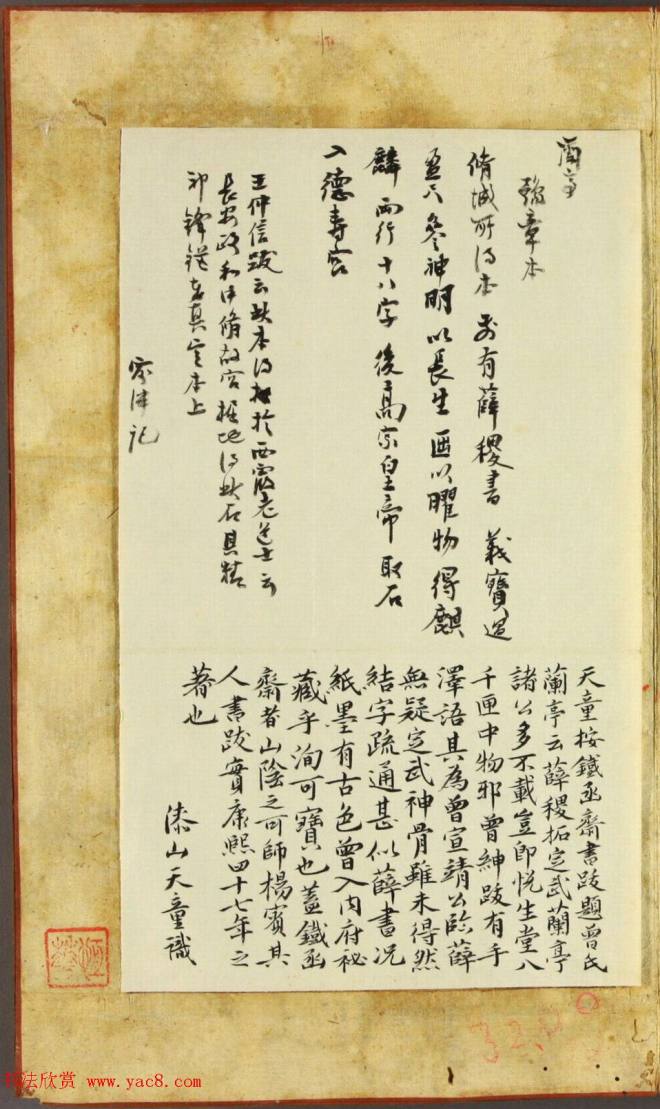 蘭亭
豫章本
脩城所得本 前有薛稷書 義寶過
直尺 參神明以長生 匣以曜物 得麒
麟 兩行十八字 後高宗皇帝 取石
入德壽宮
王仲信跋云此本得於西霞老道士云
長安政和中脩故宮掘地得此石具精
神鋒鋩在真定本上
天童按鐵函齋書跋題曾氏
蘭亭云薛稷拓定武蘭亭
諸公多不載豈即悅生堂八
千匣中物邪曾紳跋有手
澤語其為曾宣靖公臨薛
無疑定武神骨雖未得然
結字疏通甚似薛書況
紙墨有古色曾入內府祕
藏乎洵可寶也蓋鐵函
齋者山陰之可師楊賓其
人書跋實康熙四十七年之
著也
漆山天童識
书法欣赏 www.yac8.com